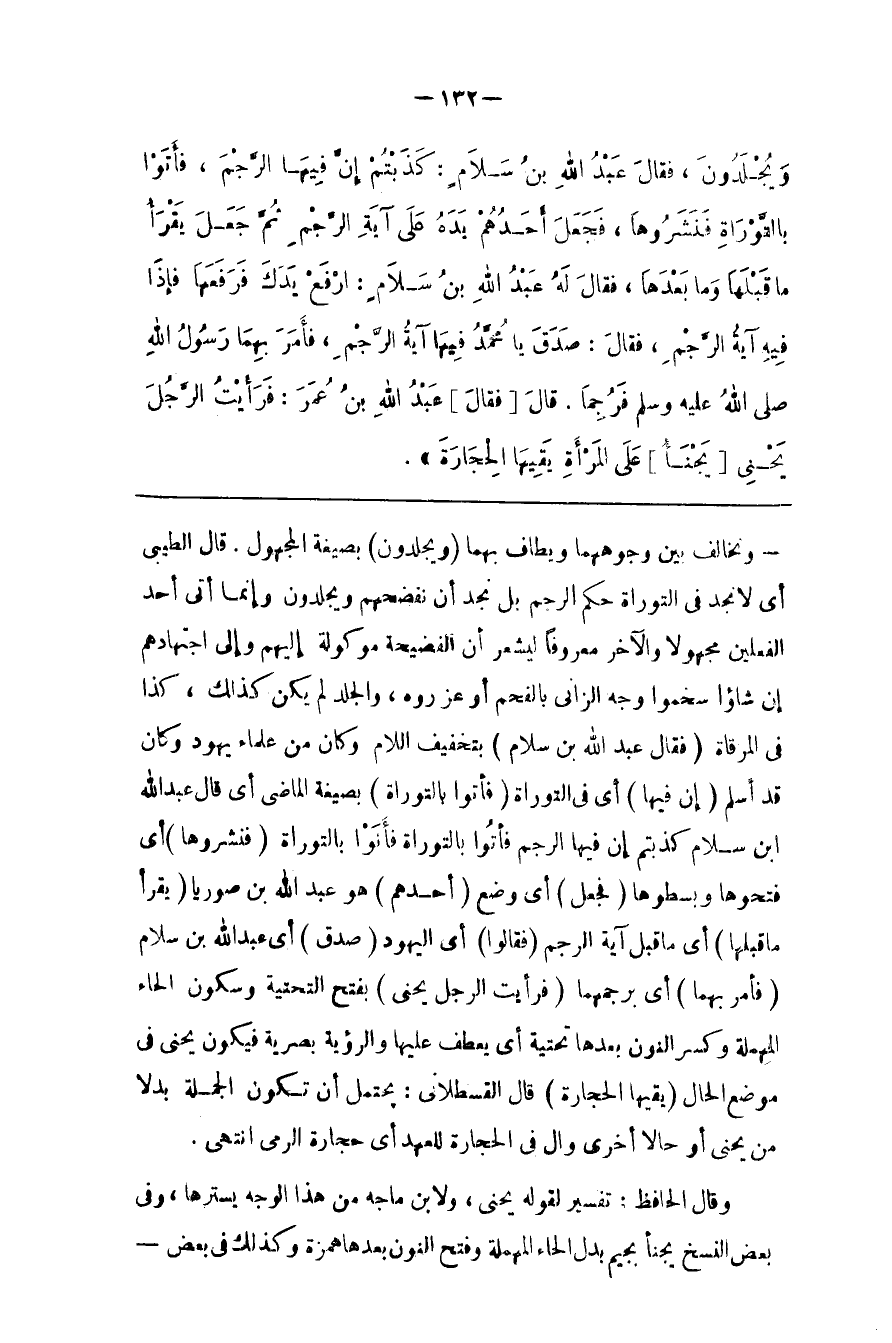 — ١٣٢ —
وَيُجْلَدُونَ ، فقالَ عَبْدُ اللهِ بنُ سَلَامٍ : كَذَبْتُمْ إِنَّ فِيهَا الرَّجْمَ ، فأَتَوْا
بالتَّوْرَاةِ فَنَشَرُوهاَ ، فَجَعَلَ أَحَدُهُمْ يَدَهُ عَلَى آيَةِ الرَّجْمِ ثُمَّ جَعَلَ يَقْرَأُ
ما قَبْلَهَا وَما بَعْدَهاَ ، فقالَ لَهُ عَبْدُ اللهِ بنُ سَلَامٍ : ارْفَعْ يَدَكَ فَرَفَعَهَا فإِذَا
فِيهِ آيَةُ الرَّجْمِ ، فقالَ : صَدَقَ يا مُحَمَّدُ فِيهَا آيَةُ الرَّجْمِ ، فأَمَرَ بِهِمَا رَسُولُ اللهِ
صلى اللهُ عليه وسلم فَرُجِمَا . قالَ [ فقالَ ] عَبْدُ اللهِ بنُ عُمَرَ : فَرَأَيْتُ الرَّجُلَ
يَحْنِى [ يَجْنَأُ ] عَلَى المَرْأَةِ يَقِيهَا الْحِجَارَةَ » .
— ونخالف بين وجوههما ويطاف بهما (ويجلدون) بصيغة المجهول . قال الطيبى
أى لانجد فى التوراة حكم الرجم بل نجد أن نفضحهم ويجلدون وإنما أتى أحد
الفعلين مجهولا والآخر معروفاً ليشعر أن الفضيحة موكولة إليهم وإلى اجتهادهم
إن شاؤا سخموا وجه الزانى بالفحم أو عزروه ، والجلد لم يكن كذالك ، كذا
فى المرقاة ( فقال عبد الله بن سلام ) بتخفيف اللام وكان من علماء يهود وكان
قد أسلم ( إن فيها ) أى فى التوراة ( فأتوا بالتوراة ) بصيغة الماضى أى قال عبدالله
ابن سلام كذبتم إن فيها الرجم فأتُوا بالتوراة فأَتَوْا بالتوراة ( فنشروها )أى
فتحوها وبسطوها ( فجعل ) أى وضع ( أحدهم ) هو عبد الله بن صوريا ( يقرأ
ماقبلها ) أى ماقبل آية الرجم (فقالوا) أى اليهود ( صدق ) أى عبدالله بن سلام
( فأمر بهما ) أى برجمهما ( فرأيت الرجل يحنى ) بفتح التحتية وسكون الحاء
المهملة وكسر النون بعدها تحتية أى يعطف عليها والرؤية بصرية فيكون يحنى فى
موضع الحال (يقيها الحجارة ) قال القسطلانى : يحتمل أن تكون الجملة بدلا
من يحنى أو حالا أخرى وال فى الحجارة للعهد أى حجارة الرمى انتهى .
وقال الحافظ : تفسير لقوله يحنى ، ولابن ماجه من هذا الوجه يسترها ، وفى
بعض النسخ يجنأ بجيم بدل الحاء المهملة وفتح النون بعدها همزة وكذلك فى بعض —